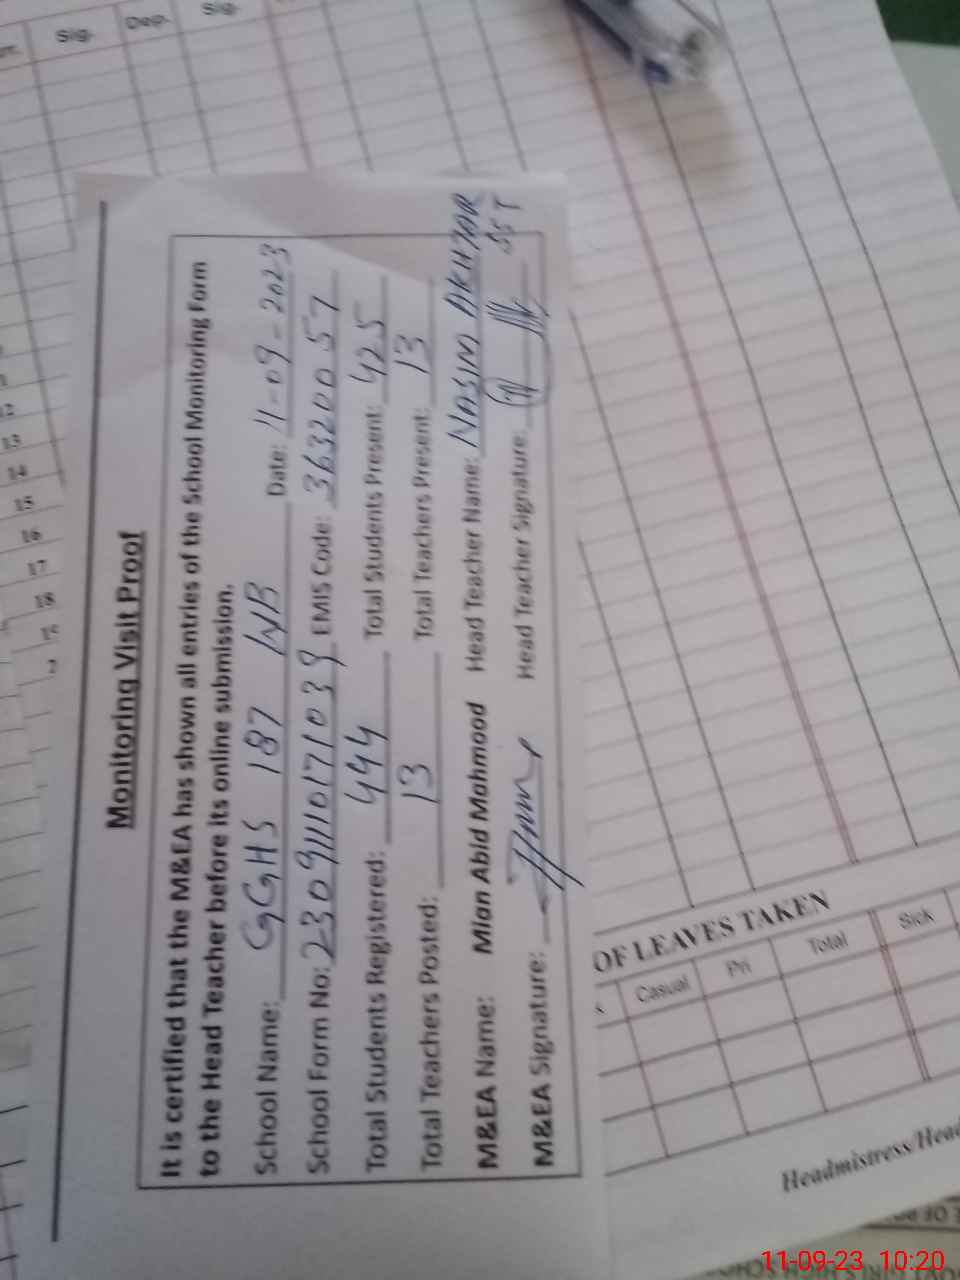 Sig.
Dep.
Sig.
Monitoring Visit Proof
It is certified that the M&EA has shown all entries of the School Monitoring Form
to the Head Teacher before its online submission.
School Name: GGHS 187 WB Date: 11-09-2023
School Form No: 230911017103 9 EMIS Code: 36320057
Total Students Registered: 444 Total Students Present: 425
Total Teachers Posted: 13 Total Teachers Present: 13
M&EA Name: Mian Abid Mahmood Head Teacher Name: NASIM AKHTAR
M&EA Signature: Head Teacher Signature: SST
12
13
14
15
16
17
18
OF LEAVES TAKEN
Casual
Pri
Total
Sick
Headmistress/Head
11-09-23 10:20